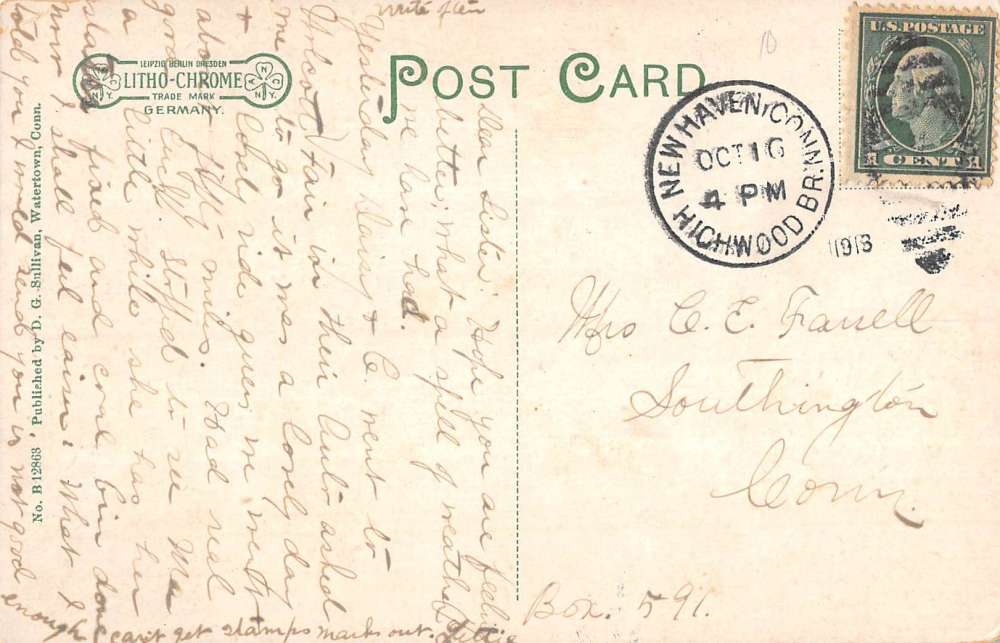 write often
LEIPZIG BERLIN DRESDEN
LITHO-CHROME
TRADE MARK
GERMANY.
N Y.
N Y.
POST CARD
U.S. POSTAGE
1 CENT 1
NEW HAVEN, CONN.
OCT 16
4 PM
HIGHWOOD BR.
1913
No. B 12863 Published by D. G. Sullivan, Watertown, Conn.
Dear Sister: Hope you are feeling
better, what a spell of weather
we have had.
Yesterday Daisy & C. went to
Wolcott Fair in their Auto asked
me to go it was a lovely day
& lovely ride guess we went
about fifty miles. Had real
good luck. Stopped to see Ma
a little while she has her
fixed and coal bin done
now I shall feel easier. What I
told you I would send you is not good
enough
can't get stamps marks out. Lottie
Mrs C. E. Farrell
Southington
Conn.
Box. 591.